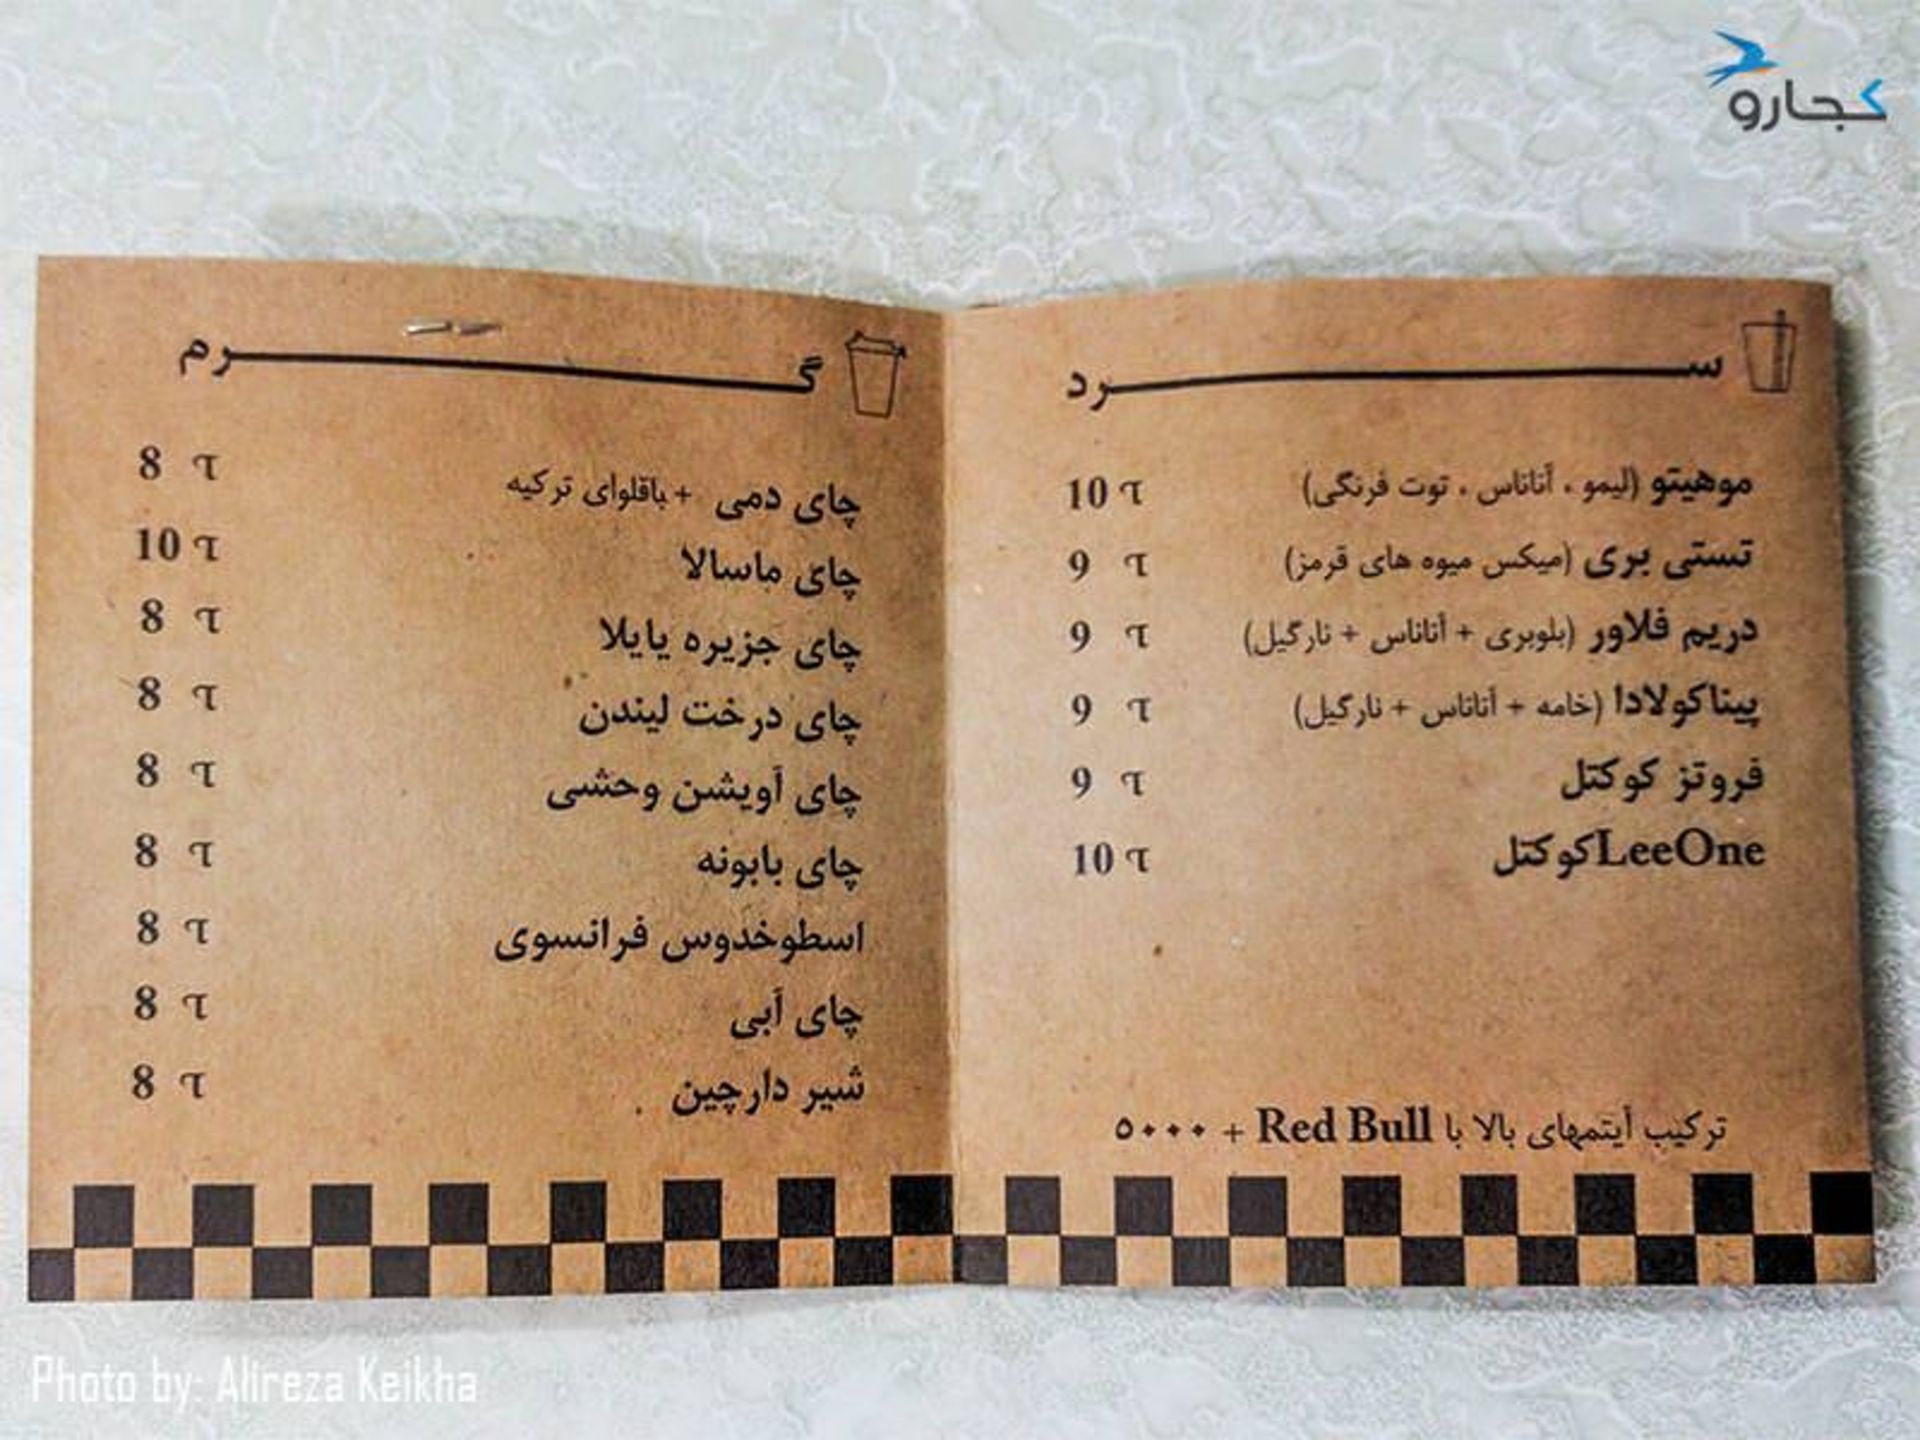 کجارو
سرد
موهیتو (لیمو ، آناناس ، توت فرنگی) 10 T
تستی بری (میکس میوه های قرمز) 9 T
دریم فلاور (بلوبری + آناناس + نارگیل) 9 T
پیناکولادا (خامه + آناناس + نارگیل) 9 T
فروتز کوکتل 9 T
LeeOneکوکتل 10 T
ترکیب آیتمهای بالا با Red Bull + ۵۰۰۰
گرم
چای دمی + باقلوای ترکیه 8 T
چای ماسالا 10 T
چای جزیره یایلا 8 T
چای درخت لیندن 8 T
چای آویشن وحشی 8 T
چای بابونه 8 T
اسطوخدوس فرانسوی 8 T
چای آبی 8 T
شیر دارچین 8 T
Photo by: Alireza Keikha